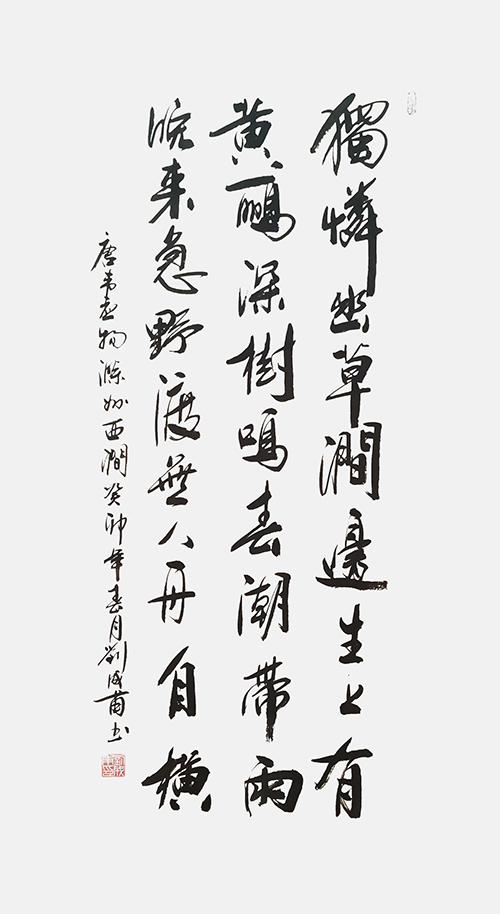 獨憐幽草澗邊生上有
黄鸝深樹鳴春潮帶雨
晚来急野渡無人舟自横
唐韦应物滁州西澗癸卯年春月劉成甫书